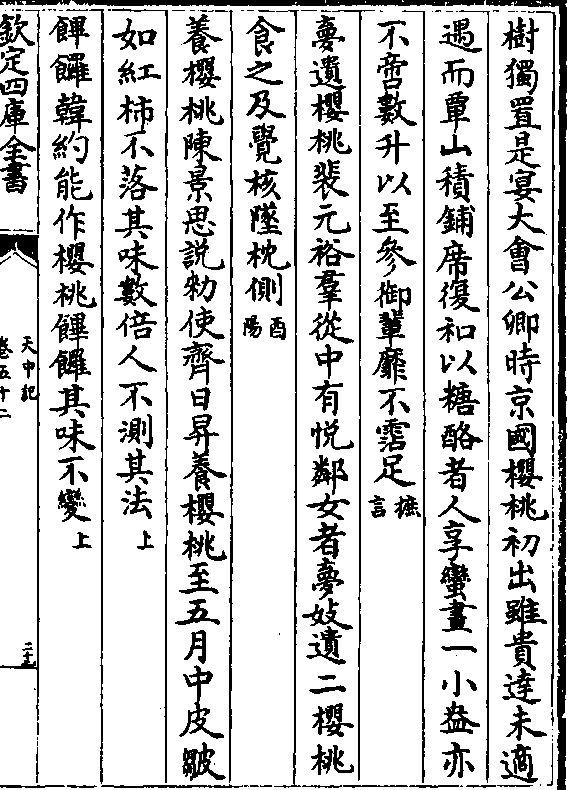 樹獨置是宴大會公卿時京國櫻桃初出雖貴達未適
遇而覃山積鋪席復和以糖酪者人享蠻畫一小盎亦
不啻數升以至參御輩靡不霑足摭言
夢遺櫻桃裴元裕羣從中有悦鄰女者夢妓遺二櫻桃
食之及覺核墜枕側酉陽
養櫻桃陳景思說勑使齊日昇養櫻桃至五月中皮皺
如紅柿不落其味數倍人不測其法上
饆饠韓約能作櫻桃饆饠其味不變上
欽定四庫全書
天中記
卷五十二